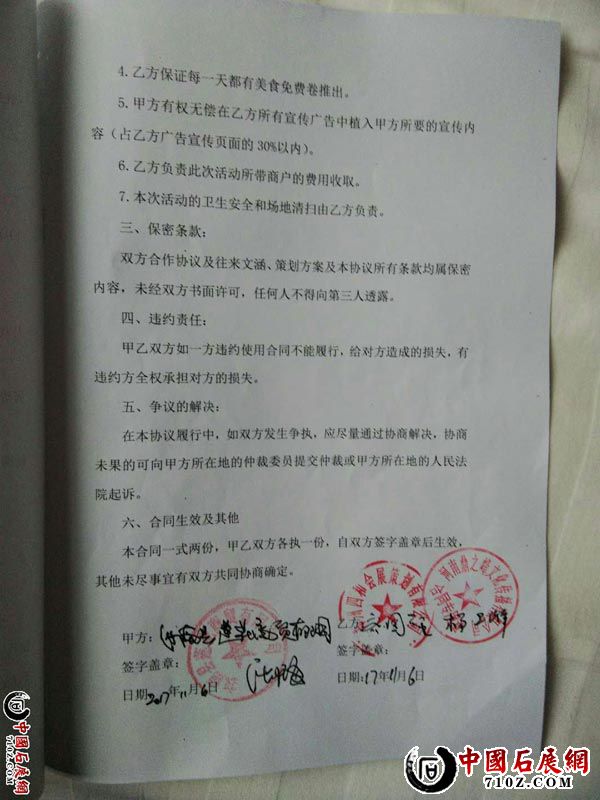 4.乙方保证每一天都有美食免费卷推出。
5.甲方有权无偿在乙方所有宣传广告中植入甲方所要的宣传内
容（占乙方广告宣传页面的30%以内）。
6.乙方负责此次活动所带商户的费用收取。
7.本次活动的卫生安全和场地清扫由乙方负责。
三、保密条款：
双方合作协议及往来文涵、策划方案及本协议所有条款均属保密
内容，未经双方书面许可，任何人不得向第三人透露。
四、违约责任：
甲乙双方如一方违约使用合同不能履行，给对方造成的损失，有
违约方全权承担对方的损失。
五、争议的解决：
在本协议履行中，如双方发生争执，应尽量通过协商解决，协商
未果的可向甲方所在地的仲裁委员提交仲裁或甲方所在地的人民法
院起诉。
六、合同生效及其他
本合同一式两份，甲乙双方各执一份，自双方签字盖章后生效，
其他未尽事宜有双方共同协商确定。
甲方：
乙方
签字盖章：
签字盖章：
日期：2017年11月6日
日期：17年11月6日
中國石展網
710Z.COM
中國石展網
710Z.COM